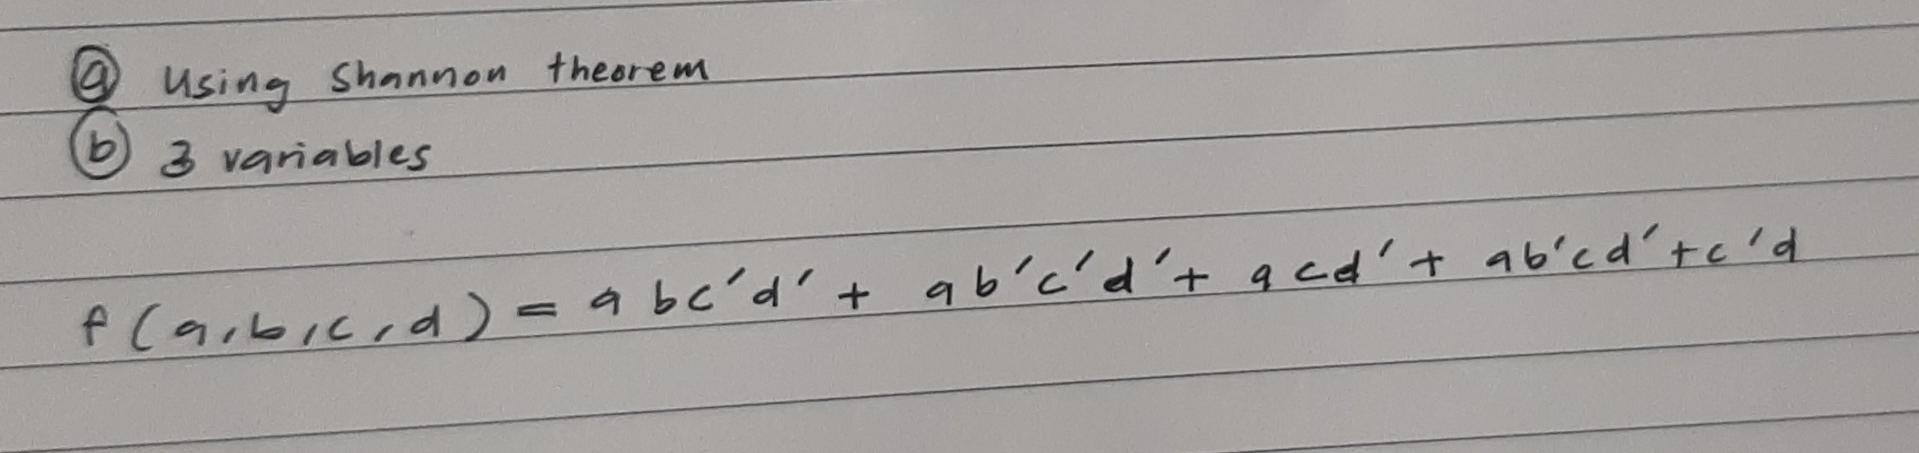 (a) Using Shannon theorem
(b) 3 variables
f(a,b,c,d) = abc'd' + ab'c'd' + acd' + ab'cd' + c'd